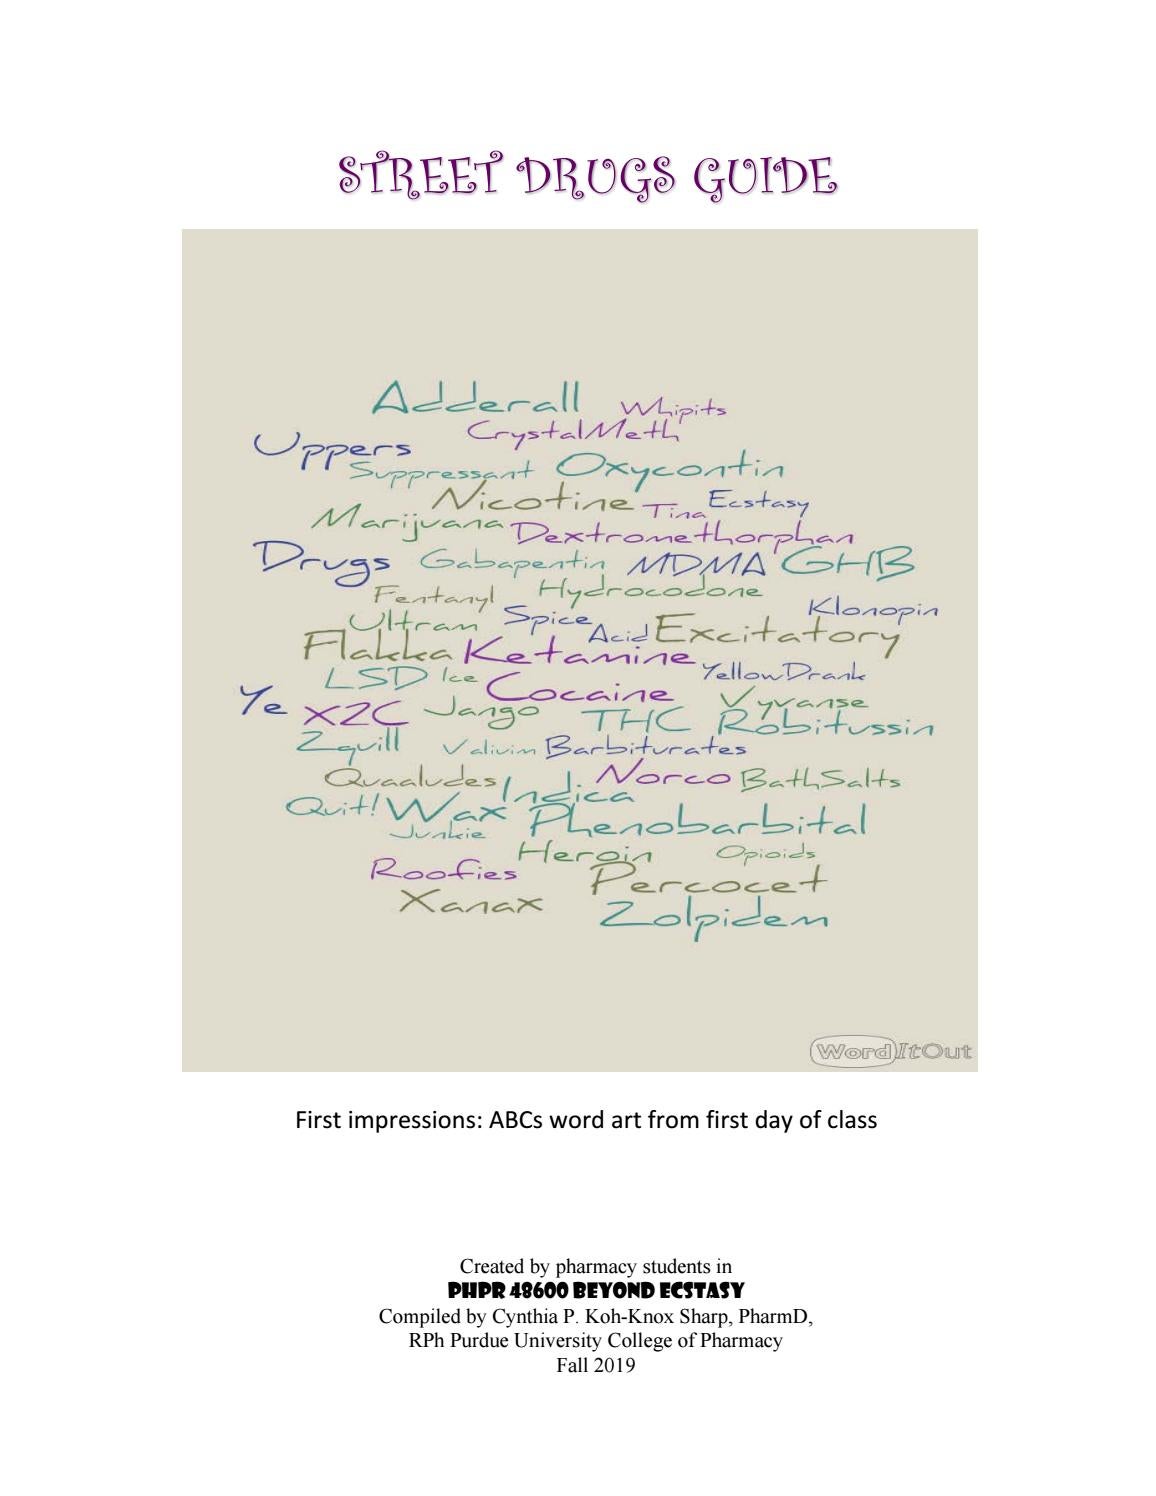 STREET DRUGS GUIDE
Adderall Whipits
CrystalMeth
Uppers
Suppressant Oxycontin
Nicotine Tina Ecstasy
Marijuana Dextromethorphan
Drugs Gabapentin MDMA GHB
Fentanyl Hydrocodone
Ultram Spice Klonopin
Flakka Ketamine Acid Excitatory
LSD Ice YellowDrank
Ye X2C Jango Cocaine Vyvanse
THC Robitussin
Zquill Valivim Barbiturates
Quaaludes Indica Norco BathSalts
Quit! Wax Phenobarbital
Junkie
Heroin Opioids
Roofies Percocet
Xanax Zolpidem
WordItOut
First impressions: ABCs word art from first day of class
Created by pharmacy students in
PHPR 48600 BEYOND ECSTASY
Compiled by Cynthia P. Koh-Knox Sharp, PharmD,
RPh Purdue University College of Pharmacy
Fall 2019